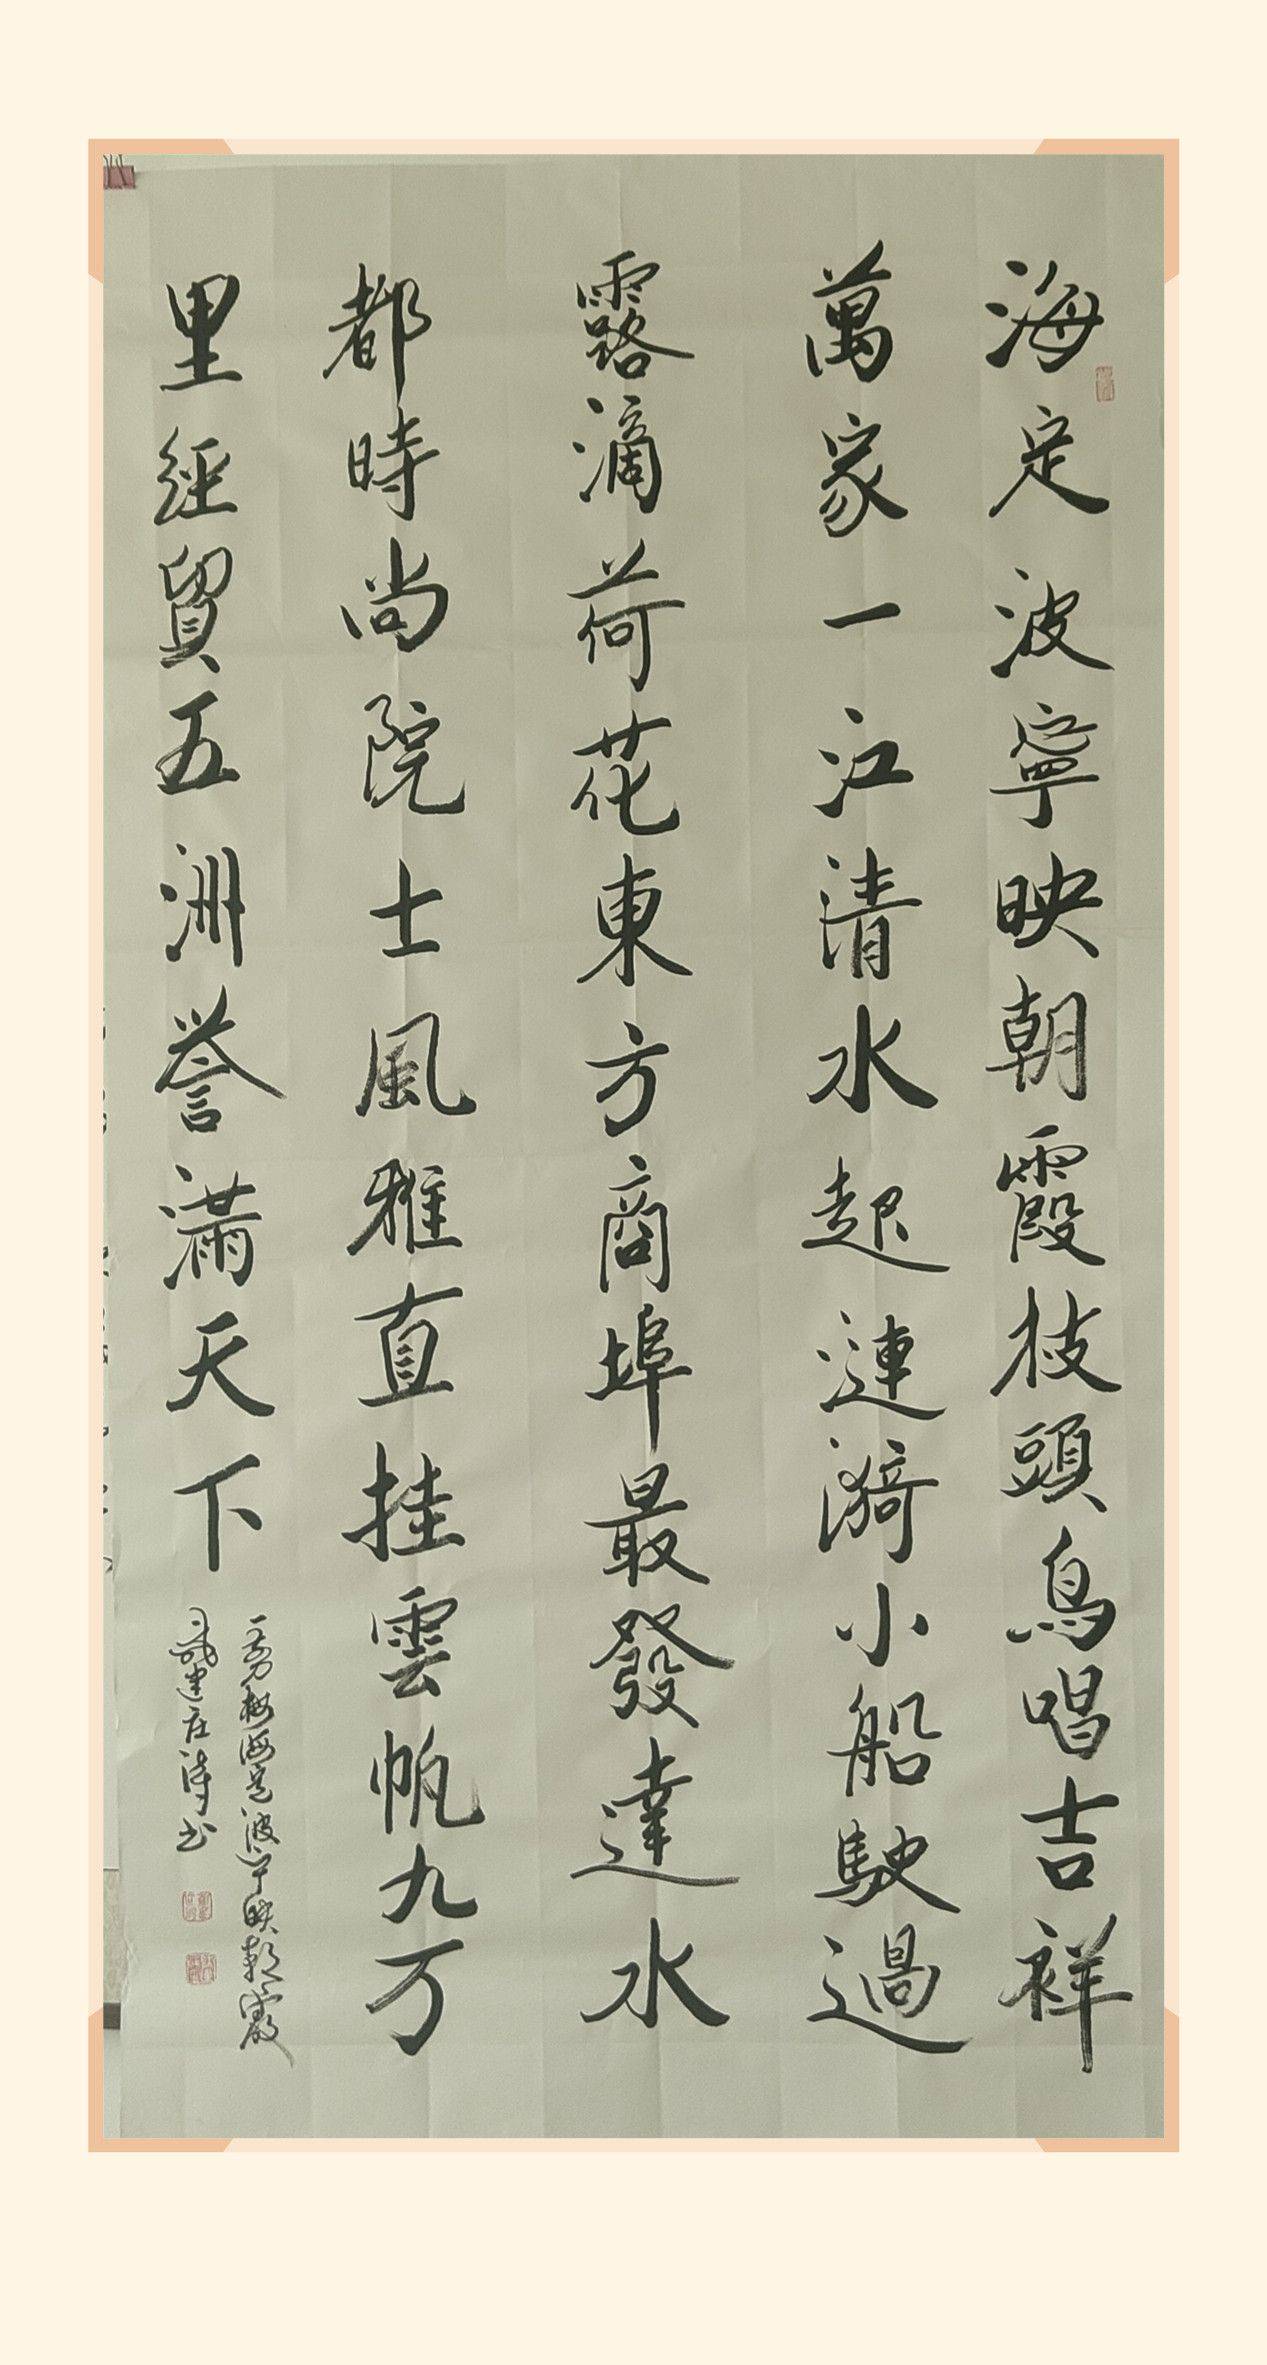 海定波寧映朝霞枝頭鳥唱吉祥
萬家一江清水起漣漪小船駛過
露滴荷花東方商埠最發達水
都時尚院士風雅直挂雲帆九万
里經貿五洲誉滿天下
一剪梅海定波寧映朝霞
建庄詩书